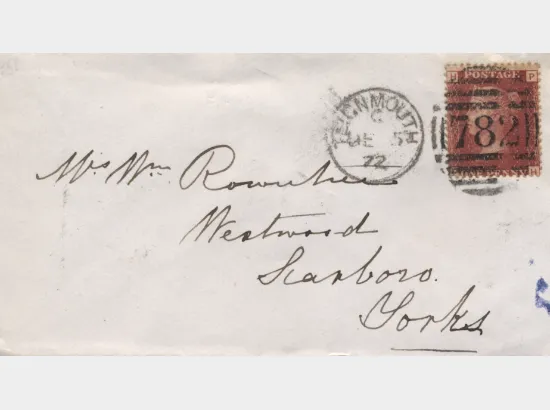 H POSTAGE P
TEIGNMOUTH
C
DE 5
72
782
Mrs Wm Rowntree
Westwood
Scarboro.
Yorks